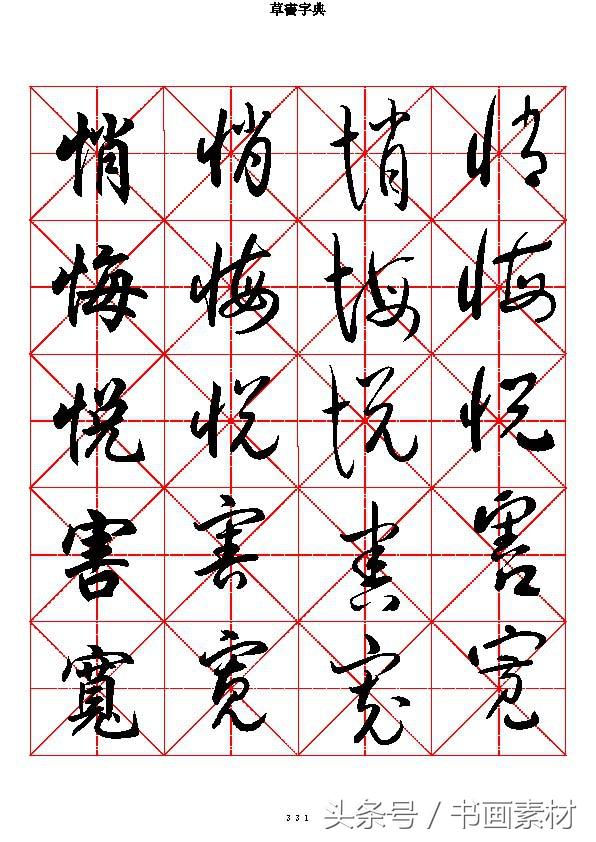 草書字典
悄 悄 悄 悄
悔 悔 悔 悔
悦 悦 悦 悦
害 害 害 害
寬 寬 寬 寬
331
头条号 / 书画素材